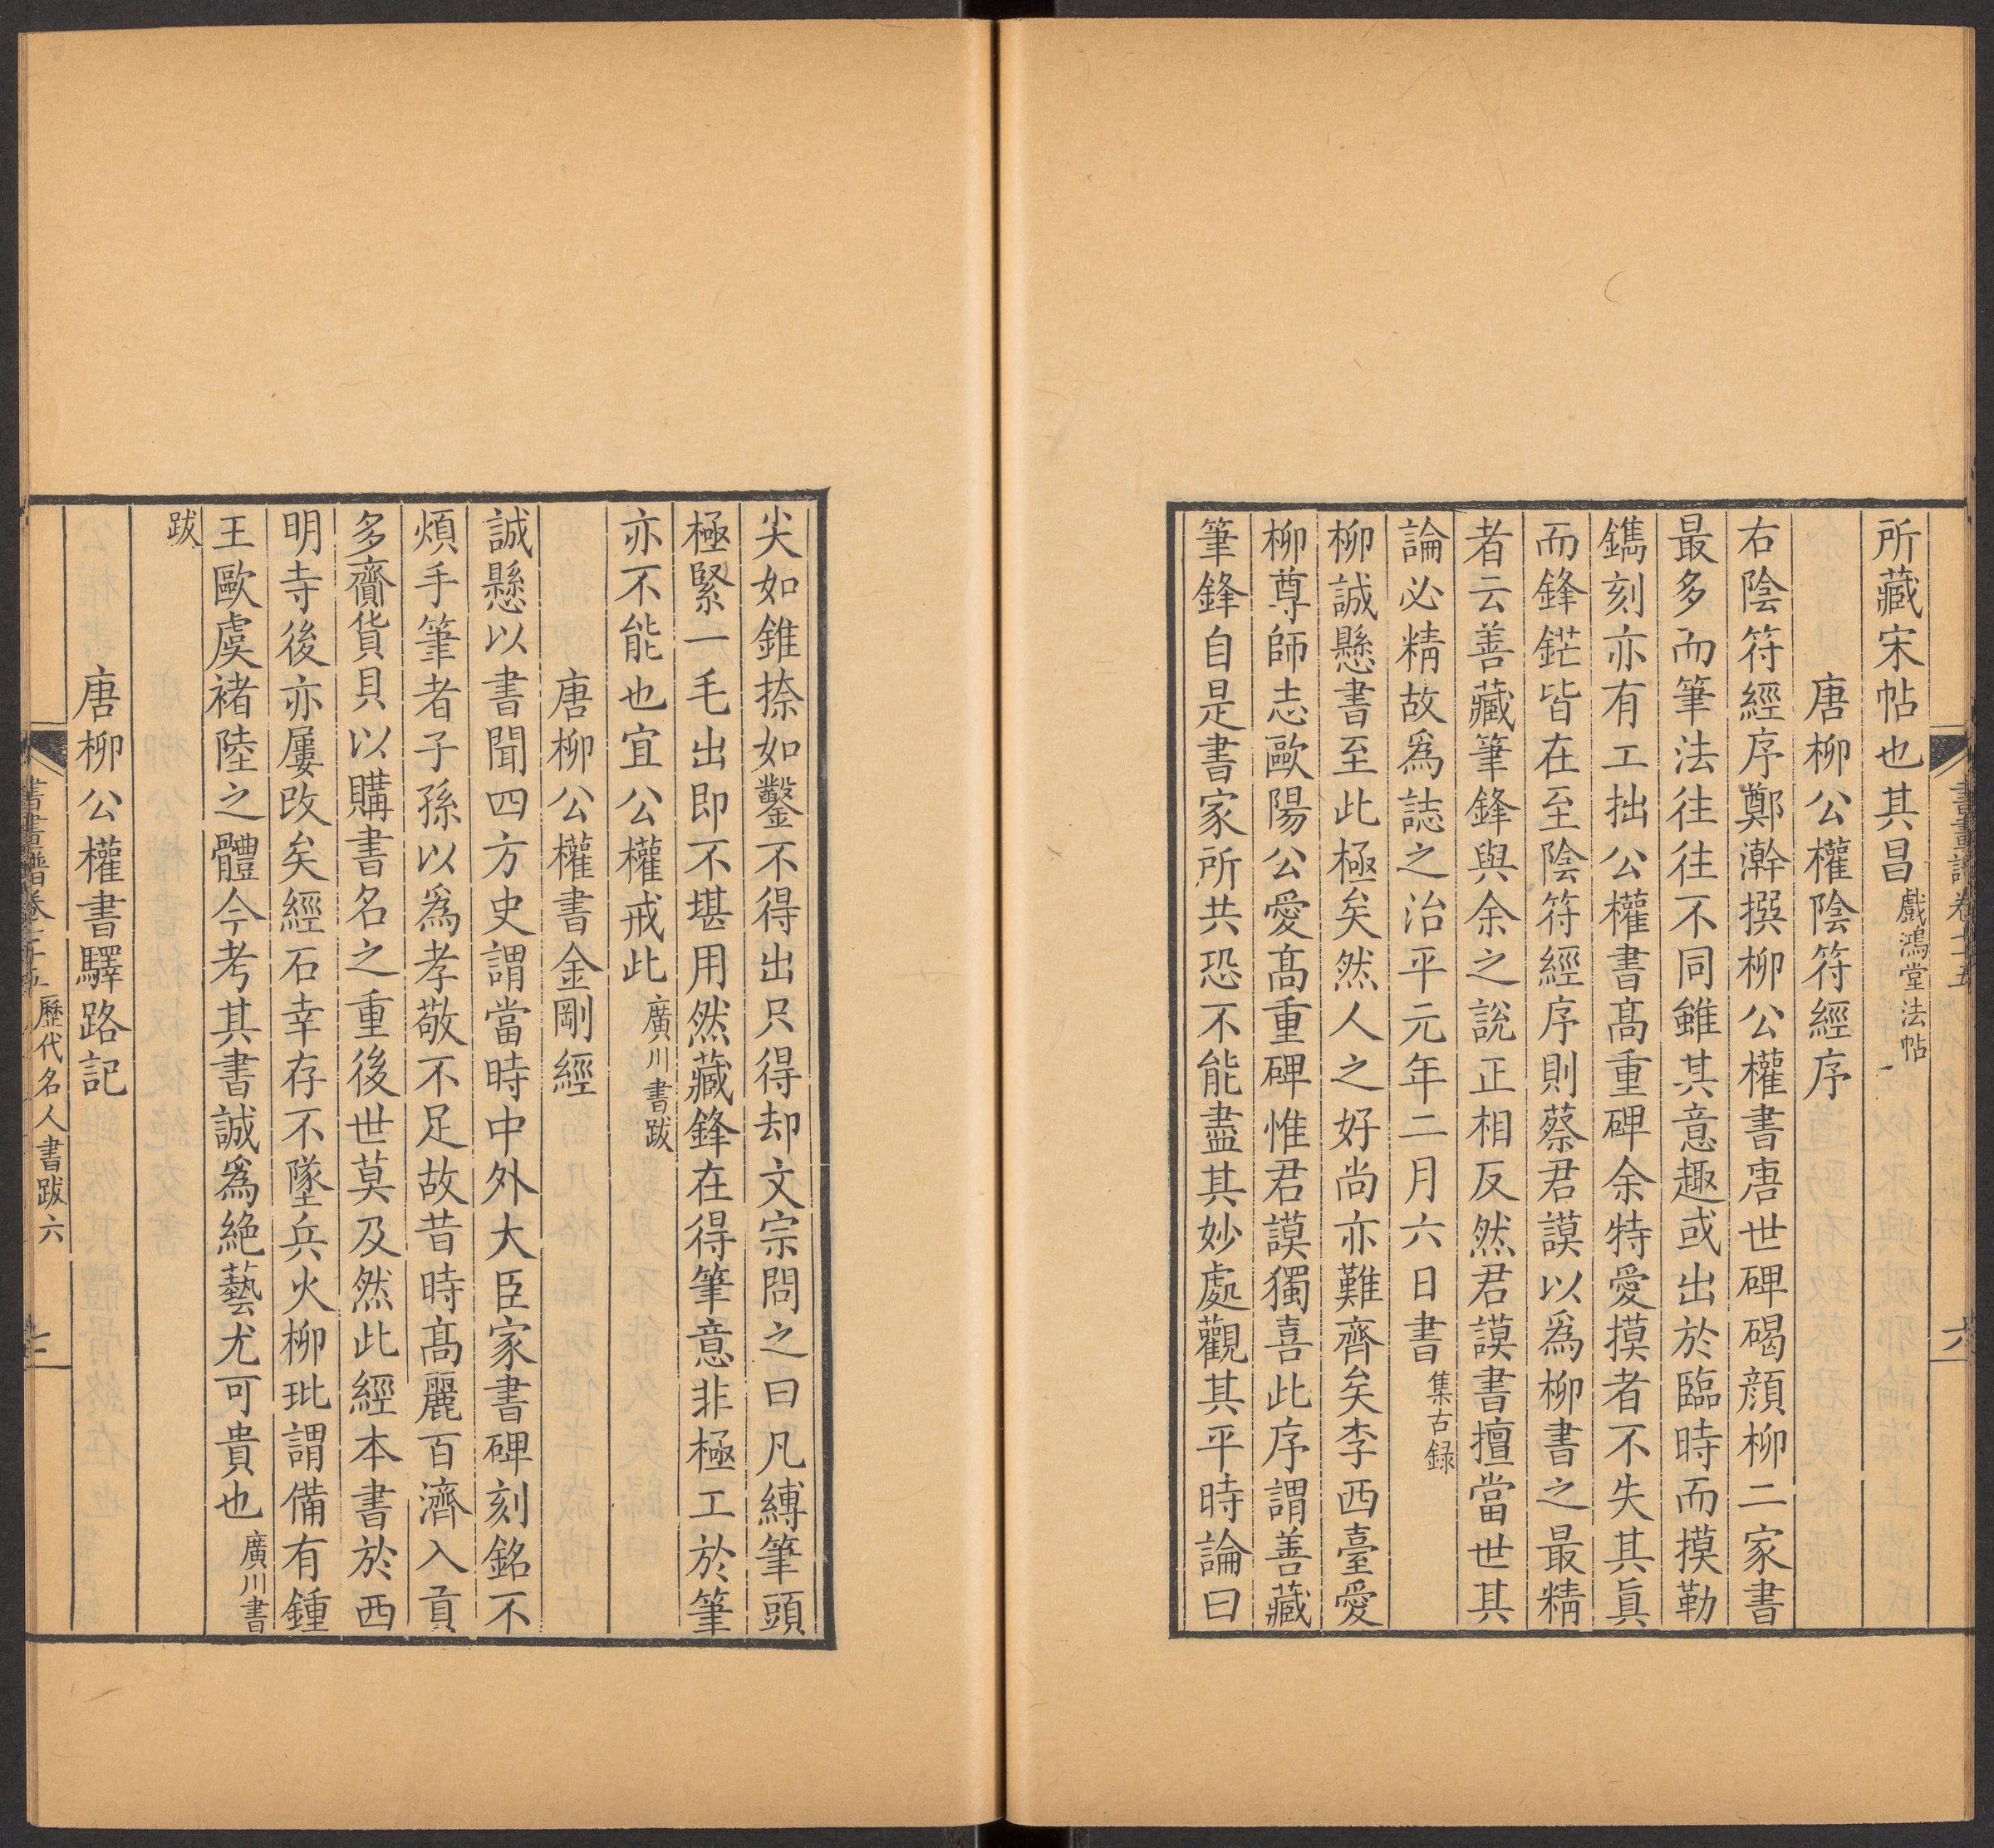 所藏宋帖也其昌戲鴻堂法帖
唐柳公權陰符經序
右陰符經序鄭澣撰柳公權書唐世碑碣顏柳二家書
最多而筆法往往不同雖其意趣或出於臨時而摸勒
鐫刻亦有工拙公權書高重碑余特愛摸者不失其眞
而鋒鋩皆在至陰符經序則蔡君謨以爲柳書之最精
者云善藏筆鋒與余之說正相反然君謨書擅當世其
論必精故爲誌之治平元年二月六日書集古録
柳誠懸書至此極矣然人之好尚亦難齊矣李西臺愛
柳尊師志歐陽公愛高重碑惟君謨獨喜此序謂善藏
筆鋒自是書家所共恐不能盡其妙處觀其平時論曰
尖如錐捺如鑿不得出只得却文宗問之曰凡縛筆頭
極緊一毛出即不堪用然藏鋒在得筆意非極工於筆
亦不能也宜公權戒此廣川書跋
唐柳公權書金剛經
誠懸以書聞四方史謂當時中外大臣家書碑刻銘不
煩手筆者子孫以爲孝敬不足故昔時高麗百濟入貢
多齎貨貝以購書名之重後世莫及然此經本書於西
明寺後亦屢改矣經石幸存不墜兵火柳玭謂備有鍾
王歐虞褚陸之體今考其書誠爲絶藝尤可貴也廣川書
跋
唐柳公權書驛路記
歷代名人書跋六